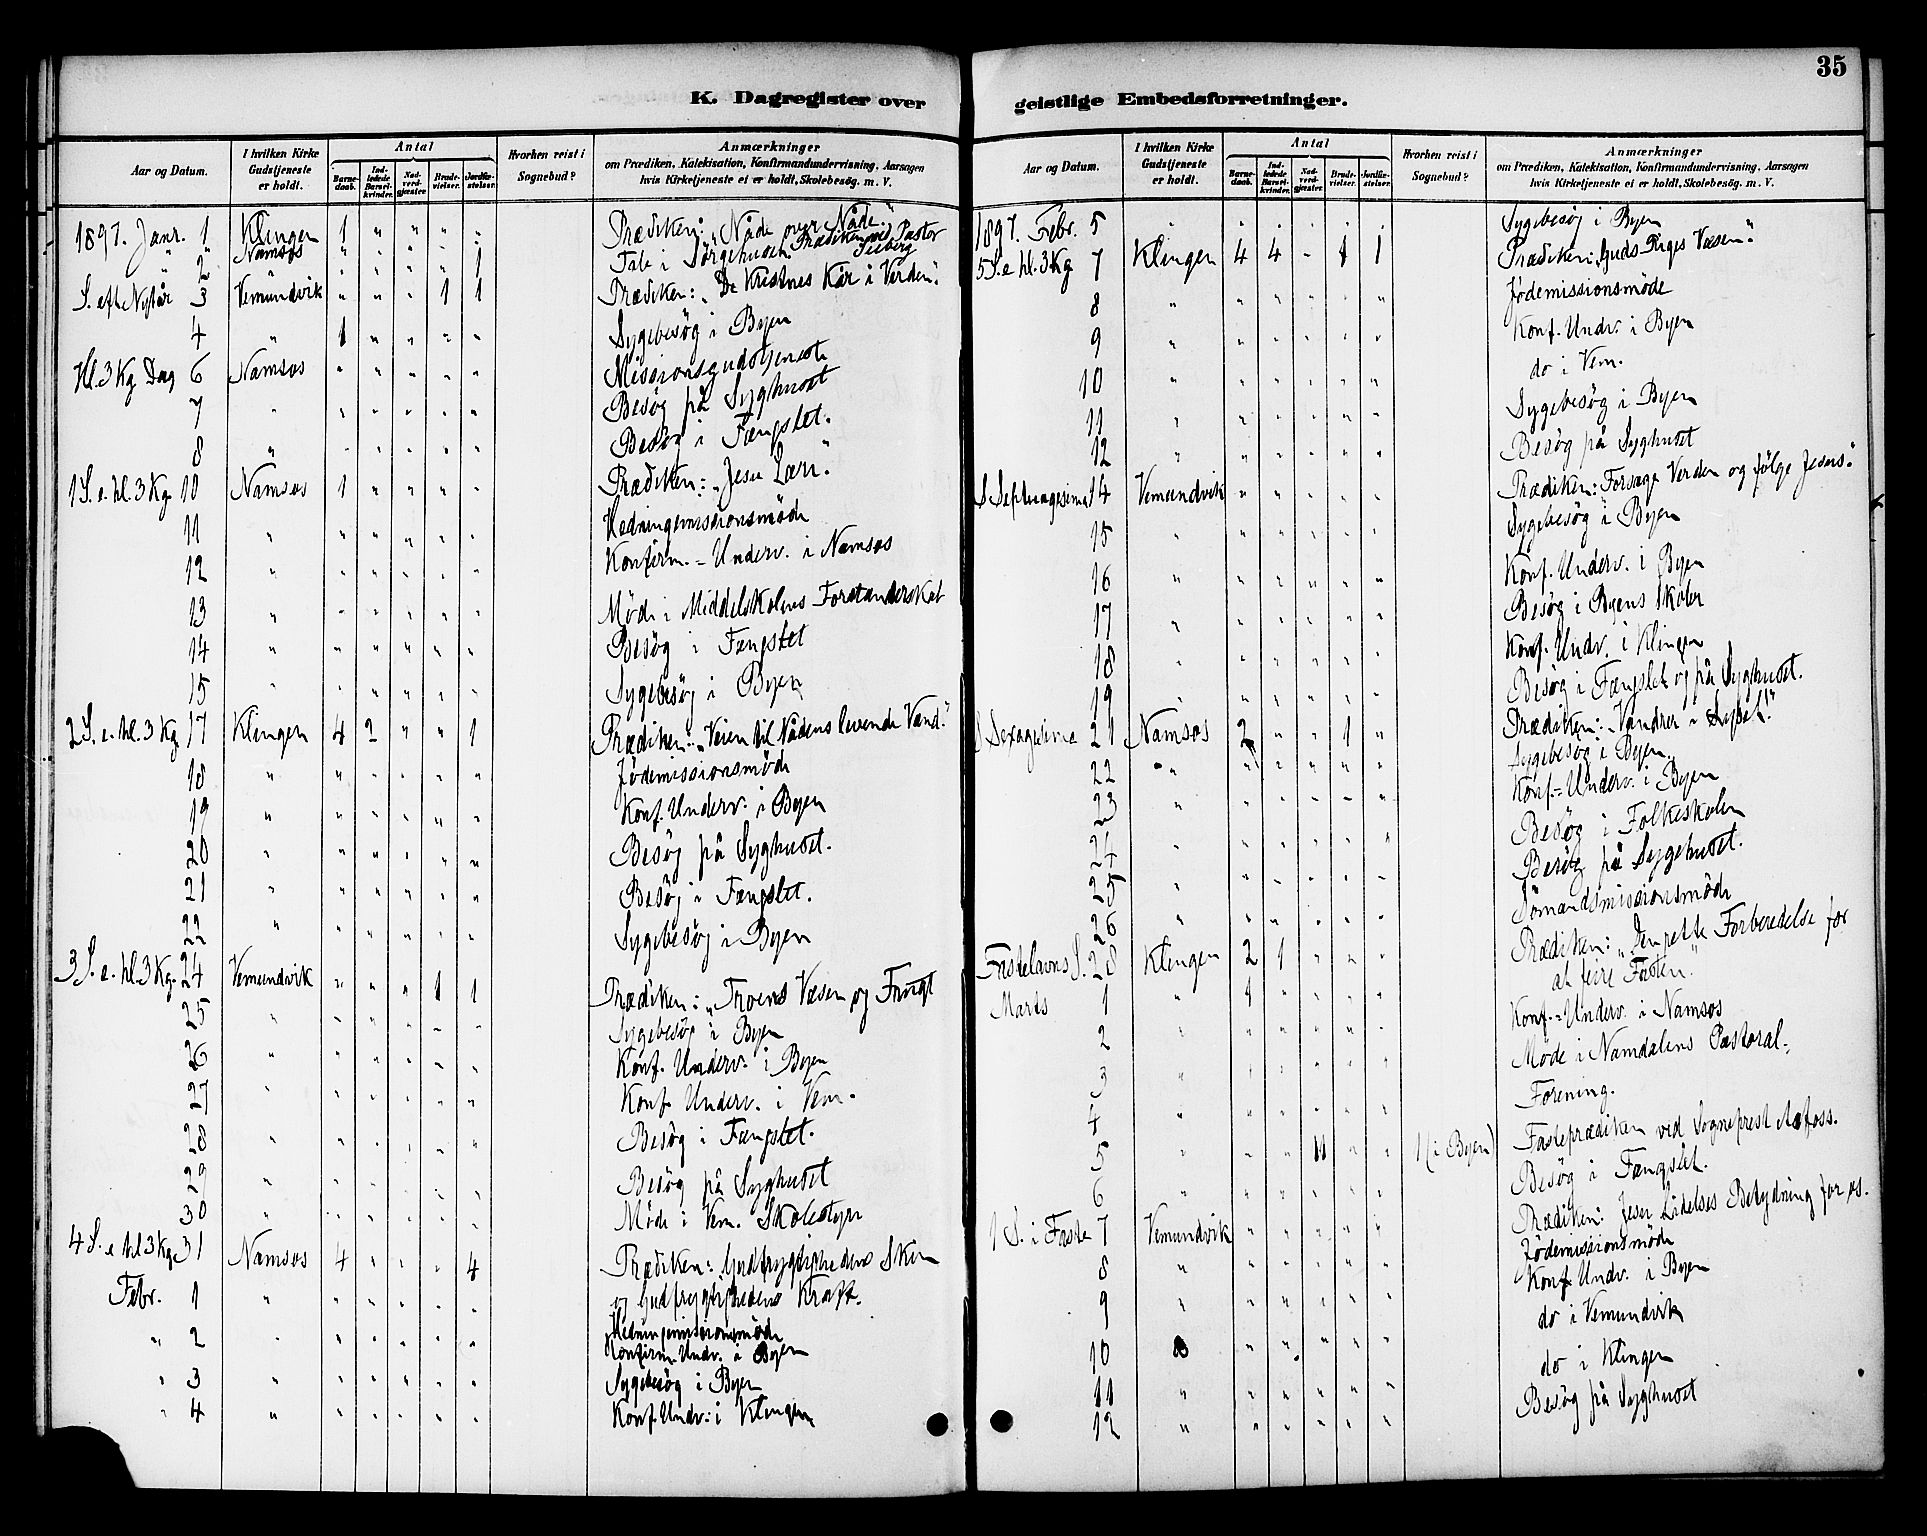 35
K. Dagregister over
Aar og Datum. I hvilken Kirke Gudstjeneste er holdt. Antal Barnedaab. Indledede Barselkvinder. Nadverdgjæster. Brudevielser. Jordfæstelser. Hvorhen reist i Sognebud? Anmærkninger om Prædiken, Katekisation, Konfirmandundervisning, Aarsagen hvis Kirketjeneste ei er holdt, Skolebesøg. m. V.
1897. Janr. 1 Klingen 1 " " " " Prædiken: "Nåde over Nåde"
" 2 Namsos " " " " 1 Tale i Sørgehuset. Prædiken ved Pastor
S. eft. Nytår 3 Vemundvik " " " 1 1 Prædiken: "De Kristnes Kår i Verden."
4 " 1 " " " " Sygebesøg i Byen
Hl. 3 Kg Dag 6 Namsos " " " " " Missionsgudstjeneste
7 " " " " " " Besøg på Syghuset
8 " " " " " " Besøg i Fængslet.
1 S. e. hl. 3 Kg. 10 Namsos 1 " " " " Prædiken: "Jesu Lære."
11 " " " " " " Hedningemissionsmøde
12 " " " " " " Konfirm.-Underv. i Namsos
13 " " " " " " Møde i Middelskolens Forstanderskab
14 " " " " " " Besøg i Fængslet
15 " " " " " " Sygebesøg i Byen
2 S. e. hl. 3 Kg. 17 Klingen 4 2 " " 1 Prædiken: "Veien til Nådens levende Vand."
18 " " " " " " Jødemissionsmøde
19 " " " " " " Konf. Underv. i Byen
20 " " " " " " Besøg på Syghuset.
21 " " " " " " Besøg i Fængslet.
22 " " " " " " Sygebesøg i Byen
3 S. e. hl. 3 Kg. 24 Vemundvik " " " 1 1 Prædiken: "Troens Væsen og Frugt
25 " " " " " " Sygebesøg i Byen
26 " " " " " " Konf. Underv. i Byen
27 " " " " " " Konf. Underv. i Vem.
28 " " " " " " Besøg i Fængslet.
29 " " " " " " Besøg på Syghuset
30 " " " " " " Møde i Vem. Skolestyre
4 S. e hl 3 Kg. 31 Namsos 4 " " " 4 Prædiken: Gudfrygtighedens Skin
Febr. 1 " " " " " " og Gudfrygtighedens Kraft.
" 2 " " " " " " Hedningemissionsmøde
Konfirm. Undv. i Byen
" 3 " " " " " Sygebesøg i Byen
" 4 " " " " " " Konf. Undv: i Klingen
geistlige Embedsforretninger.
Aar og Datum. I hvilken Kirke Gudstjeneste er holdt. Antal Barnedaab. Indledede Barselkvinder. Nadverdgjæster. Brudevielser. Jordfæstelser. Hvorhen reist i Sognebud? Anmærkninger om Prædiken, Katekisation, Konfirmandundervisning, Aarsagen hvis Kirketjeneste ei er holdt, Skolebesøg. m. V.
1897. Febr. 5 " " " " " " Sygebesøg i Byen
5 S. e hl. 3 Kg 7 Klingen 4 4 " 1 1 Prædiken: "Guds Riges Væsen."
8 " " " " " " Jødemissionsmøde
9 " " " " " " Konf. Undv. i Byen
10 " " " " " " do i Vem.
11 " " " " " " Sygebesøg i Byen
12 " " " " " " Besøg på Syghuset
S Septuagesima 14 Vemundvik " " " " " Prædiken: Forsage Verden og følge Jesus."
15 " " " " " " Sygebesøg i Byen
16 " " " " " " Konf. Underv. i Byen
17 " " " " " " Besøg i Byens Skoler
18 " " " " " " Konf. Undv. i Klingen
19 " " " " " " Besøg i Fængslet og på Syghuset.
S Sexagesima 21 Namsos 2 " " 1 " Prædiken: "Vandrer i Lyset!"
22 " " " " " " Sygebesøg i Byen.
23 " " " " " " Konf.-Underv. i Byen
24 " " " " " " Besøg i Folkeskolen
25 " " " " " " Besøg på Sygehuset.
26 " " " " " " Sømandsmissionsmøde
Fastelavns S. 28 Klingen 2 1 " " " Prædiken: "Den rette Forberedelse for
Marts 1 " 1 " " " " at feire Fasten."
2 " " " " " " Konf.-Underv. i Namsos
3 " " " " " " Møde i Namdalens Pastoral-
4 " " " " " " Forening.
5 " " " 11 " " 1 (i Byen) Fasteprædiken ved Sogneprest
6 " " " " " " Besøg i Fængslet.
1 S. i Faste 7 Vemundvik " " " " " Prædiken: Jesu Lidelses Betydning for os.
8 " " " " " " Jødemissionsmøde
Konf. Undv. i Byen
9 " " " " " " do i Vemundvik
10 " " " " " do i Klingen
11 " " " " " "
12 " " " " " " Besøg på Syghuset